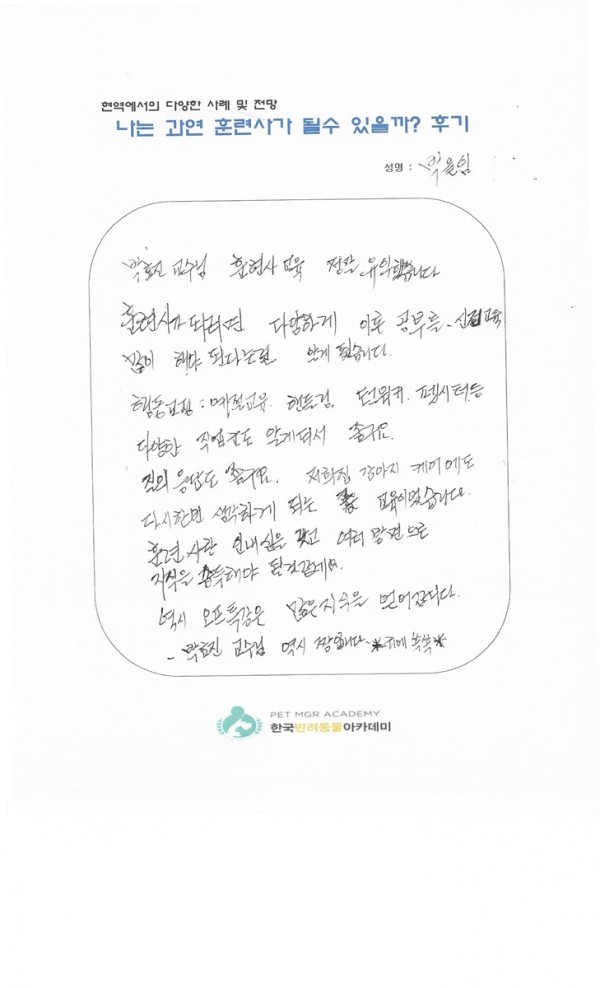 현역에서의 다양한 사례 및 전망
나는 과연 훈련사가 될수 있을까? 후기
성명 : 박을임
박효진 교수님 훈련사 교육 정말 유익했습니다
훈련사가 되려면 다양하게 이론 공부를, 실전교육
많이 해야 된다는걸 알게 됐습니다.
행동교정: 예절교육, 핸들링, 도그워커, 펫시터등
다양한 직업군도 알게되서 좋구요.
질의 응답도 좋구요, 저희집 강아지 케어에도
다시한번 생각하게 되는 교육이었습니다.
훈련사란 인내심을 갖고 여러 방면으로
지식을 습득해야 될것같네요.
역시 오프특강은 많은지식을 얻어갑니다.
- 박효진 교수님 역시 짱입니다. *귀에 쏙쏙*
PET MGR ACADEMY
한국반려동물아카데미